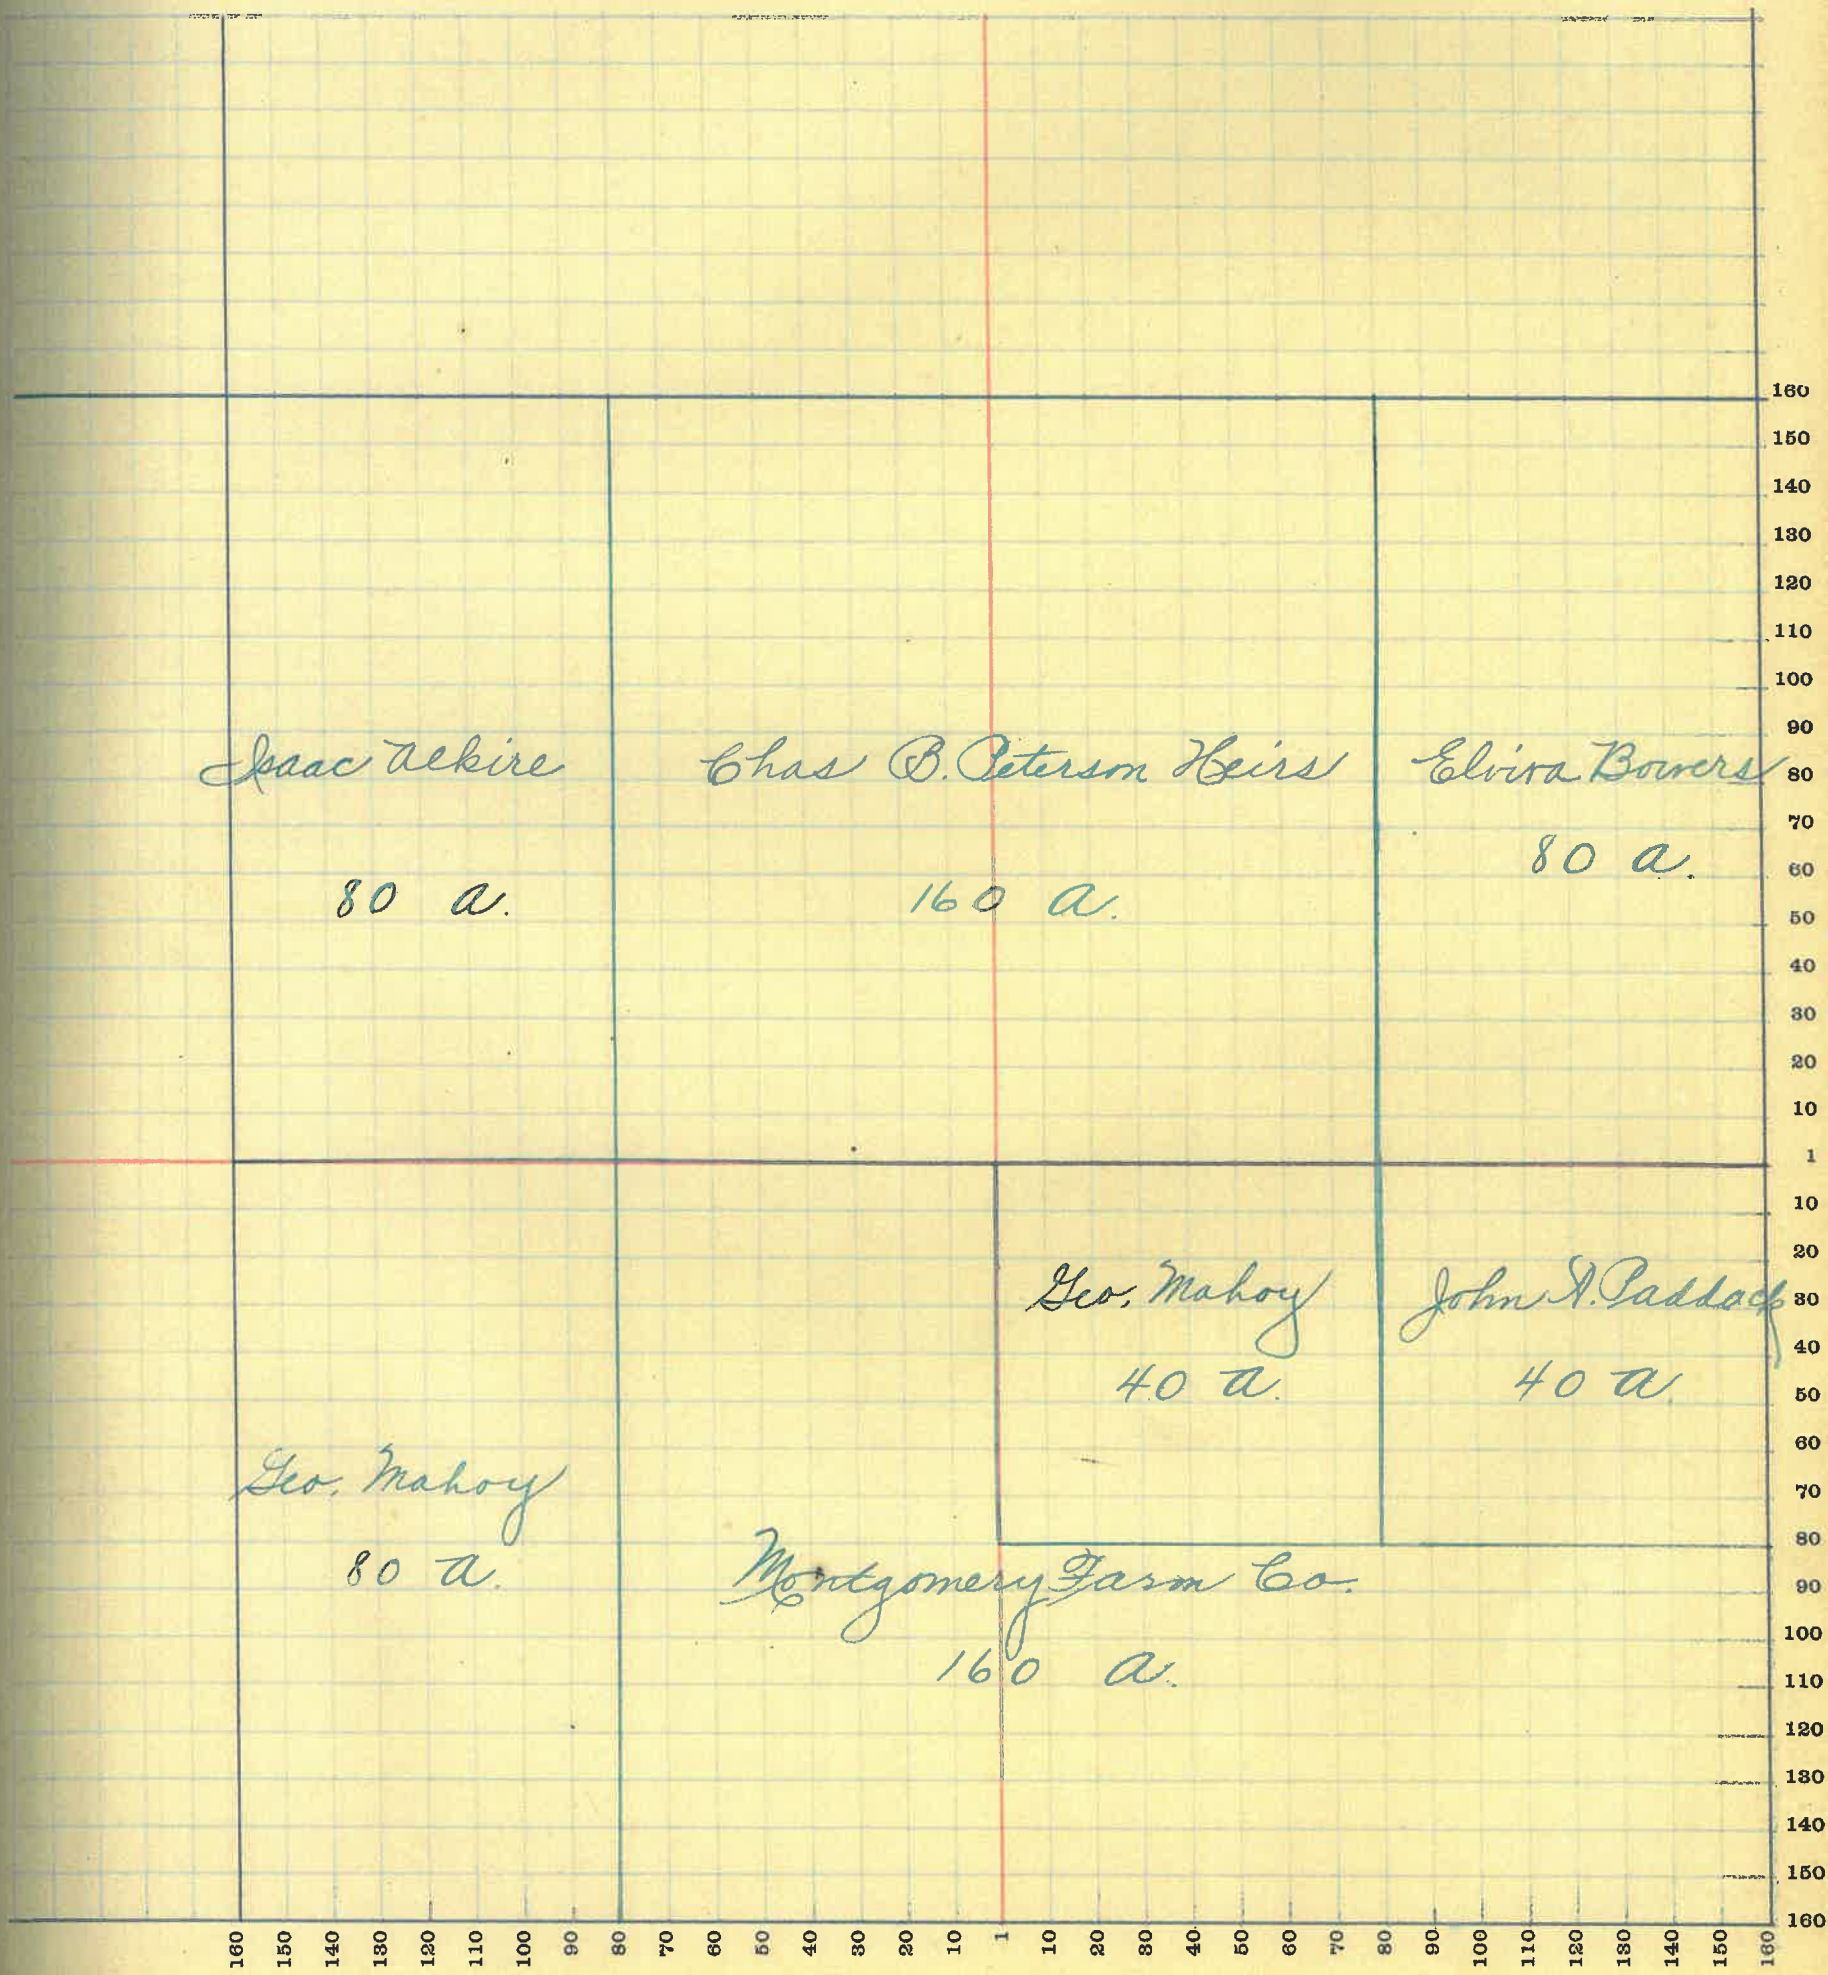 Isaac Alkire
80 a.
Chas B. Peterson Heirs
160 a.
Elvira Bowers
80 a.
Geo. Mahoy
40 a.
John A. Paddack
40 a
Geo. Mahoy
80 a.
Montgomery Farm Co.
160 a.
160
150
140
130
120
110
100
90
80
70
60
50
40
30
20
10
1
10
20
30
40
50
60
70
80
90
100
110
120
130
140
150
160
160 150 140 130 120 110 100 90 80 70 60 50 40 30 20 10 1 10 20 30 40 50 60 70 80 90 100 110 120 130 140 150 160